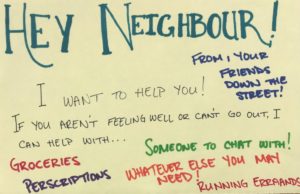 HEY NEIGHBOUR!
FROM, YOUR
FRIENDS
DOWN THE
STREET!
I WANT TO HELP YOU!
IF YOU AREN'T FEELING WELL OR CAN'T GO OUT, I
CAN HELP WITH...
SOMEONE TO CHAT WITH!
GROCERIES
WHATEVER ELSE YOU MAY
NEED!
PERSCRIPTIONS
RUNNING ERRANDS